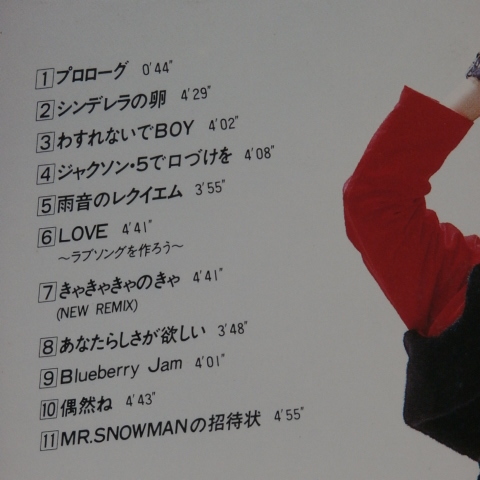 1 プロローグ 0'44"
2 シンデレラの卵 4'29"
3 わすれないでBOY 4'02"
4 ジャクソン・5で口づけを 4'08"
5 雨音のレクイエム 3'55"
6 LOVE 4'41"
～ラブソングを作ろう～
7 きゃきゃきゃのきゃ 4'41"
(NEW REMIX)
8 あなたらしさが欲しい 3'48"
9 Blueberry Jam 4'01"
10 偶然ね 4'43"
11 MR.SNOWMANの招待状 4'55"